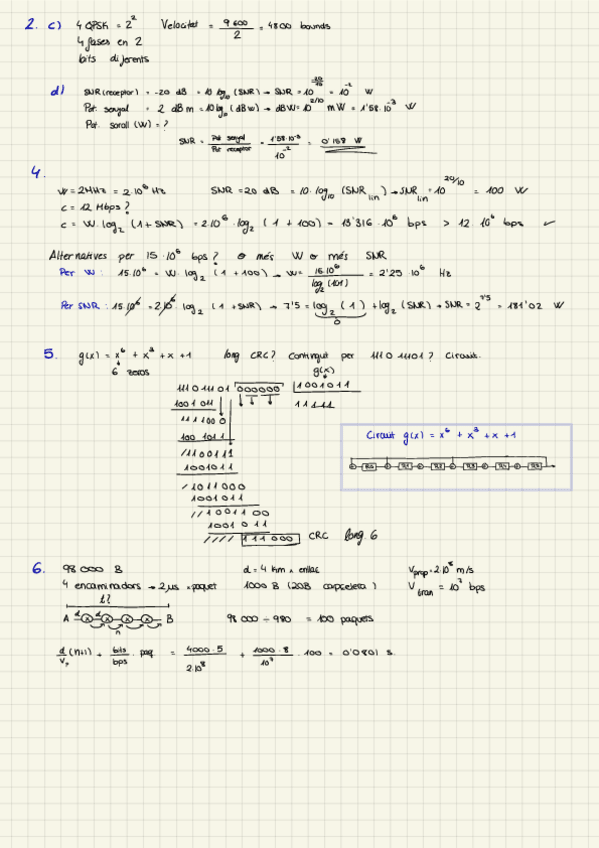 2. c) 4 QPSK = 2² Velocitat = 9600/2 = 4800 bounds
4 fases en 2
bits diferents
d) SNR (receptor) = -20 dB = 10 log₁₀ (SNR) → SNR = 10^(-20/10) = 10⁻² W
Pot. senyal = 2 dBm = 10 log₁₀ (dBW) → dBW = 10^(2/10) mW = 1'58·10⁻³ W
Pot. soroll (W) = ?
SNR = Pot senyal/Pot receptor = 1'58·10⁻³/10⁻² = 0'158 W
4.
W = 2MHz = 2·10⁶ Hz SNR = 20 dB = 10·log₁₀ (SNR lin) → SNR lin = 10^(20/10) = 100 W
c = 12 Mbps?
c = W·log₂ (1+SNR) = 2·10⁶·log₂ (1+100) = 13'316·10⁶ bps > 12·10⁶ bps ✓
Alternatives per 15·10⁶ bps? o més W o més SNR
Per W: 15·10⁶ = W·log₂ (1+100) → W = 15·10⁶/log₂(101) = 2'25·10⁶ Hz
Per SNR: 15·10⁶ = 2·10⁶·log₂ (1+SNR) → 7'5 = log₂ (1) + log₂ (SNR) → SNR = 2^7'5 = 181'02 W
0
5. g(x) = x⁶ + x³ + x + 1 long CRC? Contingut per 1110 1101? Circuit.
6 zeros
g(x)
1110 1101 000000 1001011
1001 011 11111
111100 0
100 1011
/1100111
1001011
/1011000
1001011
//1001100
1001011
//// 111000 CRC long. 6
Circuit g(x) = x⁶ + x³ + x + 1
6. 98000 B d = 4 km x enllaç Vprop = 2·10⁸ m/s
4 encaminadors → 2μs x paquet 1000 B (20B capçelera) Vtran = 10⁷ bps
t?
A B
98000 ÷ 980 = 100 paquets
d/Vp (n+1) + bits/bps · paq = 4000·5/2·10⁸ + 1000·8/10⁷ · 100 = 0'0801 s.